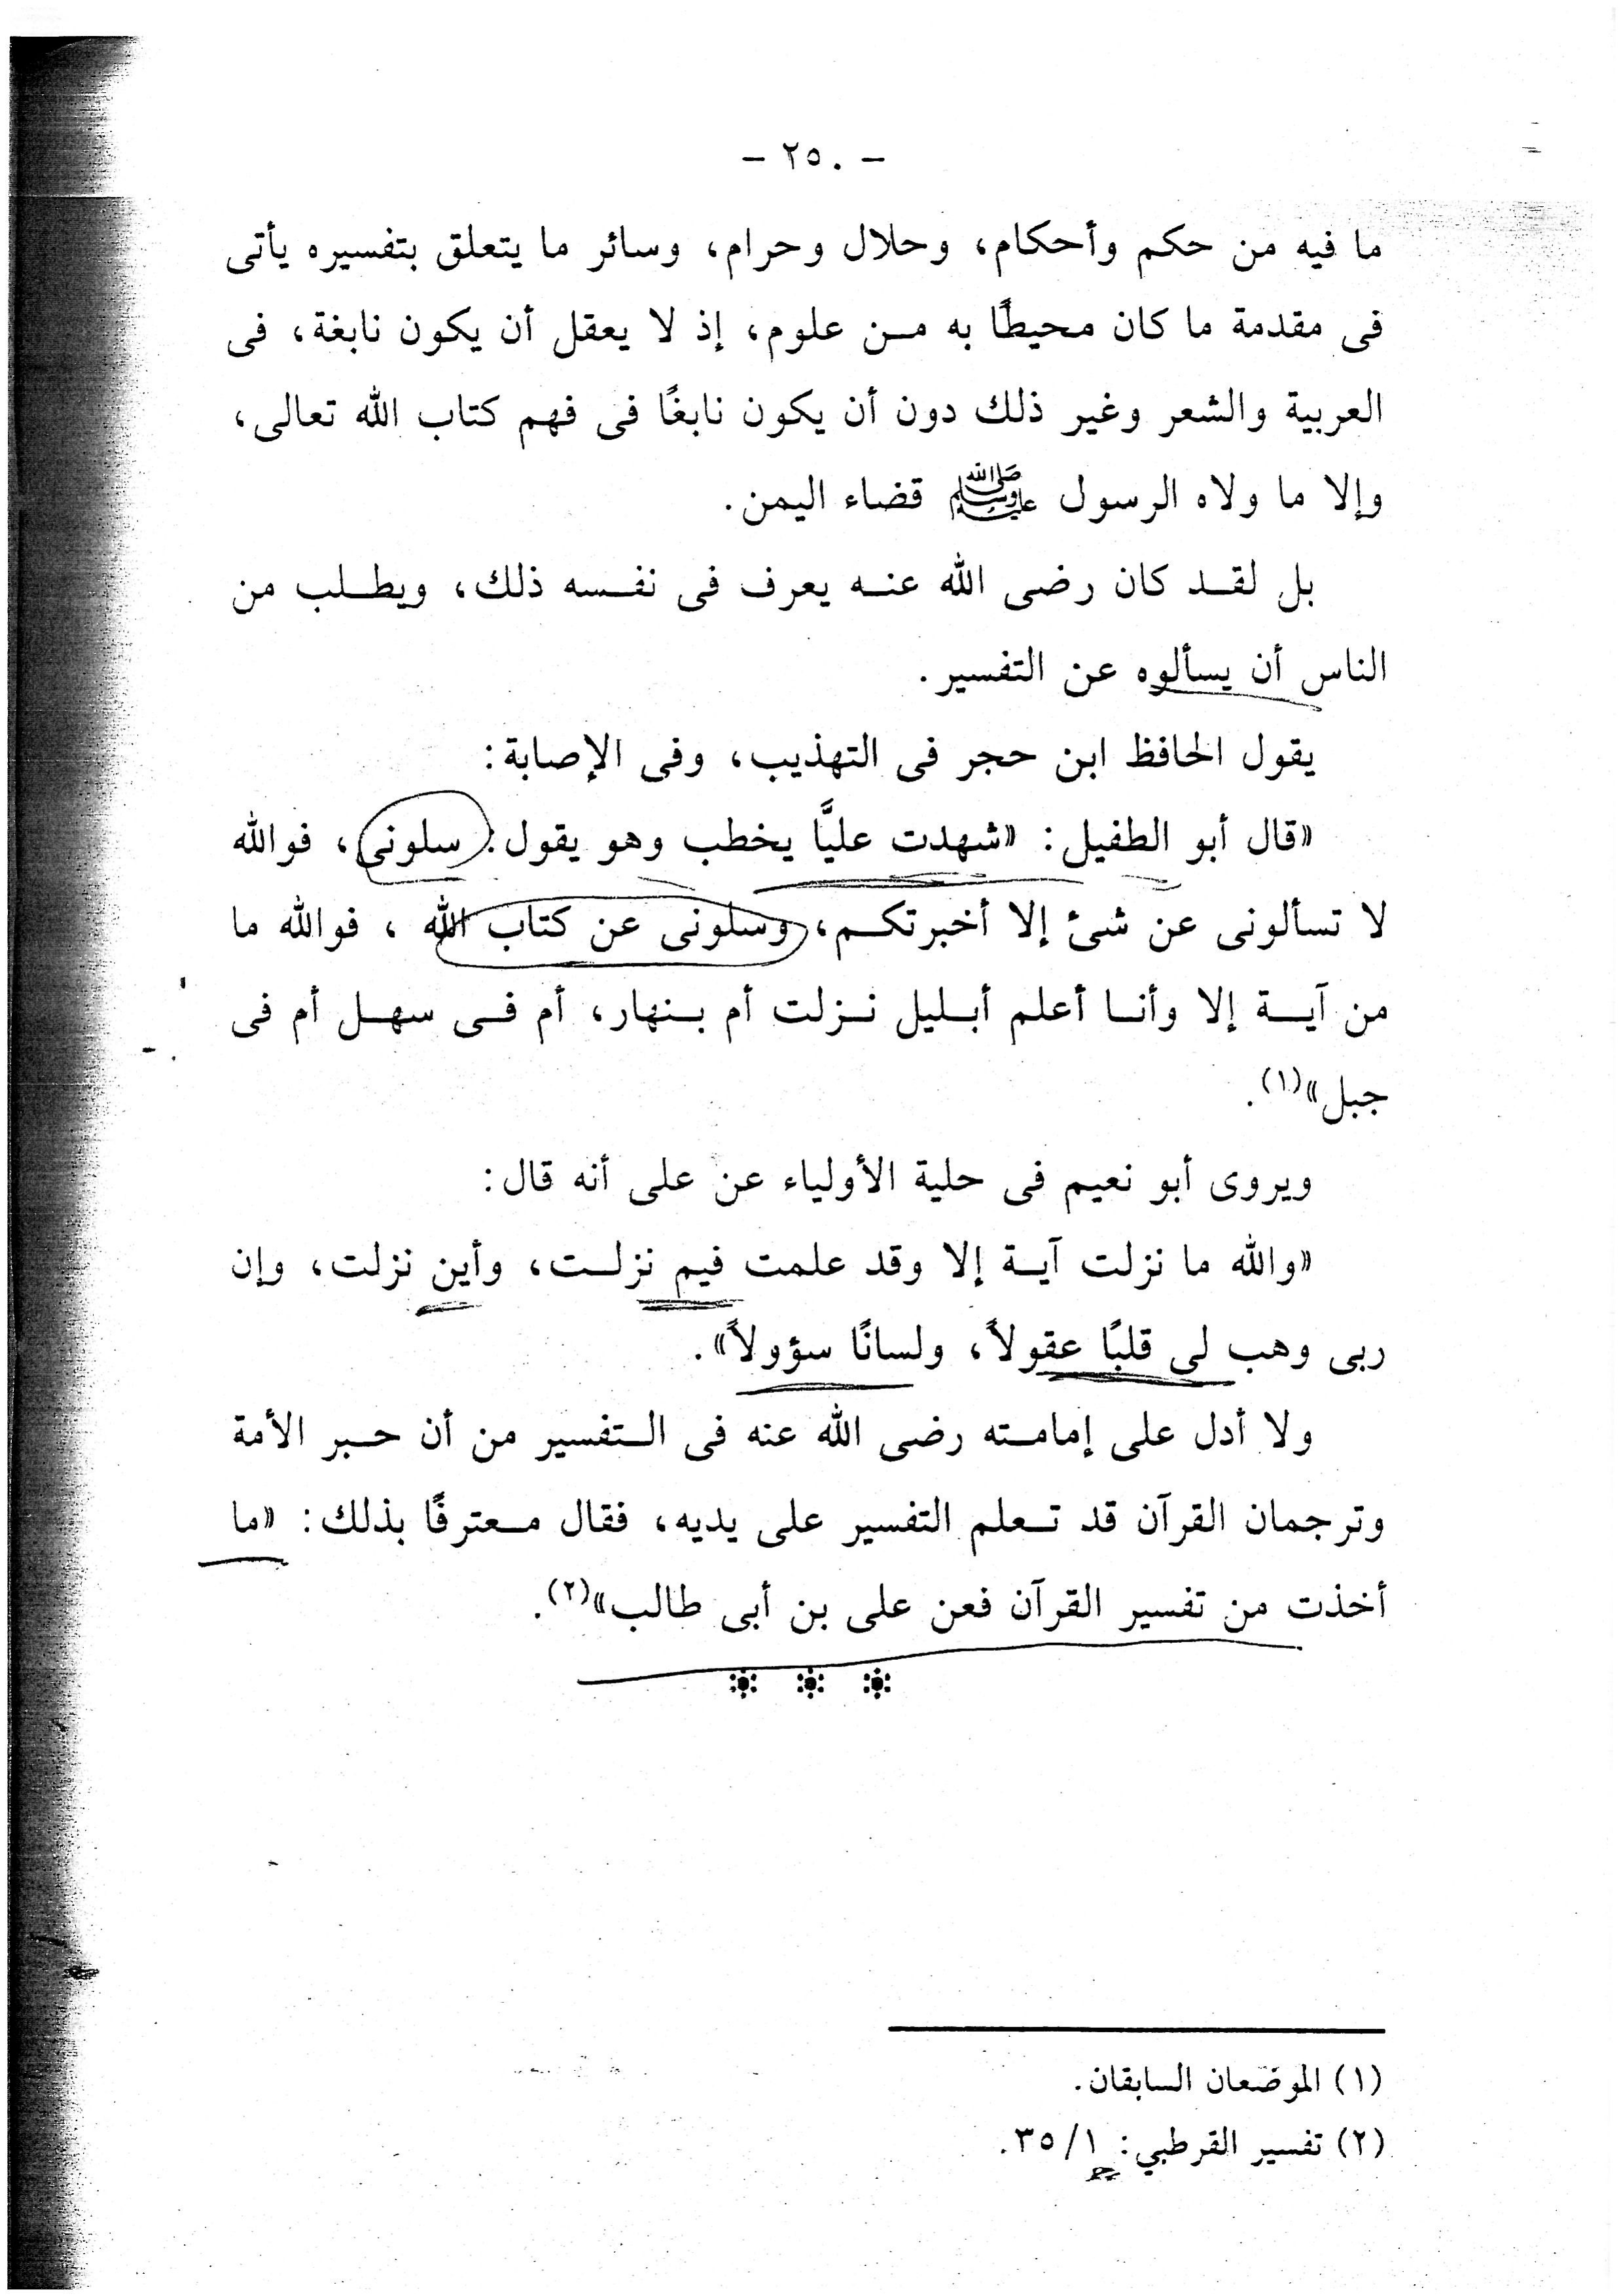 - ٢٥٠ -
ما فيه من حكم وأحكام، وحلال وحرام، وسائر ما يتعلق بتفسيره يأتى
فى مقدمة ما كان محيطًا به مـن علوم، إذ لا يعقل أن يكون نابغة، فى
العربية والشعر وغير ذلك دون أن يكون نابغًا فى فهم كتاب الله تعالى،
وإلا ما ولاه الرسول ﷺ قضاء اليمن.
بل لقـد كان رضى الله عنـه يعرف فى نفـسه ذلك، ويطـلب من
الناس أن يسألوه عن التفسير.
يقول الحافظ ابن حجر فى التهذيب، وفى الإصابة:
«قال أبو الطفيل: «شهدت عليًّا يخطب وهو يقول: سلونى، فوالله
لا تسألونى عن شئ إلا أخبرتكـم، وسلونى عن كتاب الله ، فوالله ما
من آيـة إلا وأنـا أعلم أبـليل نـزلت أم بـنهار، أم فـى سهـل أم فى
جبل»(١).
ويروى أبو نعيم فى حلية الأولياء عن على أنه قال:
«والله ما نزلت آيـة إلا وقد علمت فيم نزلـت، وأين نزلت، وإن
ربى وهب لى قلبًا عقولاً، ولسانًا سؤولاً».
ولا أدل على إمامـته رضى الله عنه فى الـتفسير من أن حـبر الأمة
وترجمان القرآن قد تـعلم التفسير على يديه، فقال مـعترفًا بذلك: «ما
أخذت من تفسير القرآن فعن على بن أبى طالب»(٢).
(١) الموضعان السابقان.
(٢) تفسير القرطبي: ٣٥/١.